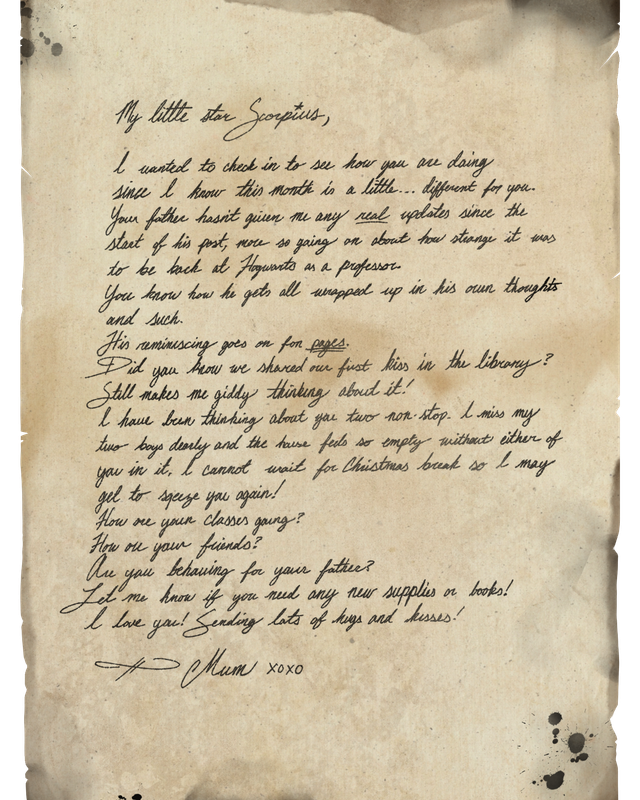 My little star Scorpius,
I wanted to check in to see how you are doing
since I know this month is a little... different for you.
Your father hasn't given me any real updates since the
start of his post, more so going on about how strange it was
to be back at Hogwarts as a professor.
You know how he gets all wrapped up in his own thoughts
and such.
His reminiscing goes on for pages.
Did you know we shared our first kiss in the library?
Still makes me giddy thinking about it!
I have been thinking about you two non-stop. I miss my
two boys dearly and the house feels so empty without either of
you in it. I cannot wait for Christmas break so I may
get to sqeeze you again!
How are your classes going?
How are your friends?
Are you behaving for your father?
Let me know if you need any new supplies or books!
I love you! Sending lots of hugs and kisses!
Mum xoxo